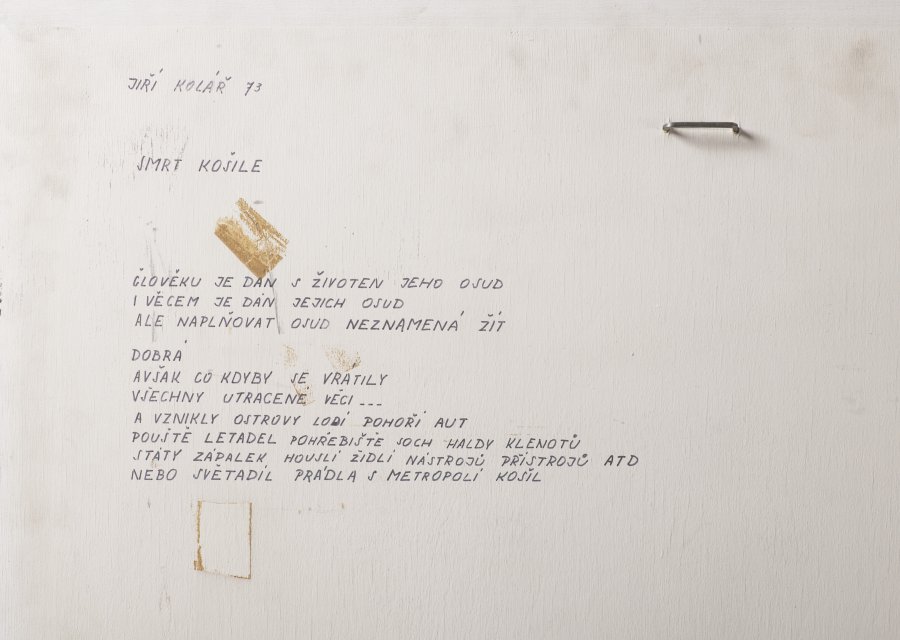 JIŘÍ KOLÁŘ 73
SMRT KOŠILE
ČLOVĚKU JE DÁN S ŽIVOTEN JEHO OSUD
I VĚCEM JE DÁN JEJICH OSUD
ALE NAPLŇOVAT OSUD NEZNAMENÁ ŽÍT
DOBRÁ
AVŠAK CO KDYBY SE VRÁTILY
VŠECHNY UTRACENÉ VĚCI ---
A VZNIKLY OSTROVY LODÍ POHOŘÍ AUT
POUŠTĚ LETADEL POHŘEBIŠTĚ SOCH HALDY KLENOTŮ
STÁTY ZÁPALEK HOUSLÍ ŽIDLÍ NÁSTROJŮ PŘÍSTROJŮ ATD
NEBO SVĚTADÍL PRÁDLA S METROPOLÍ KOŠIL